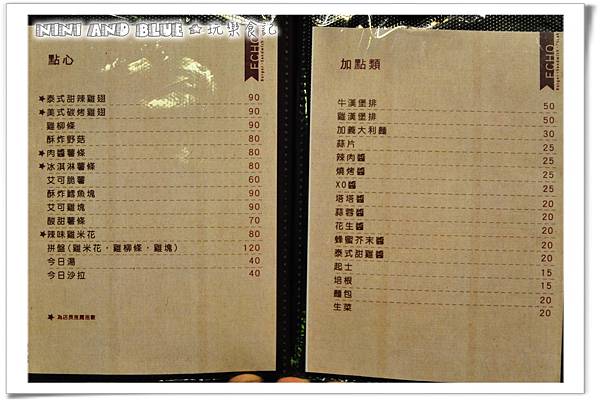 NINI AND BLUE ✿玩樂食記
ECHO
點心
★泰式甜辣雞翅 90
★美式碳烤雞翅 90
雞柳條 90
酥炸野菇 80
★肉醬薯條 80
★冰淇淋薯條 80
艾可脆薯 60
酥炸鱈魚塊 90
艾可雞塊 90
酸甜薯條 70
★辣味雞米花 80
拼盤(雞米花,雞柳條,雞塊) 120
今日湯 40
今日沙拉 40
ECHO
加點類
牛漢堡排 50
雞漢堡排 50
加義大利麵 30
蒜片 25
辣肉醬 25
燒烤醬 25
XO醬 25
塔塔醬 20
蒜蓉醬 20
花生醬 20
蜂蜜芥末醬 20
泰式甜雞醬 20
起士 15
培根 15
麵包 20
生菜 20